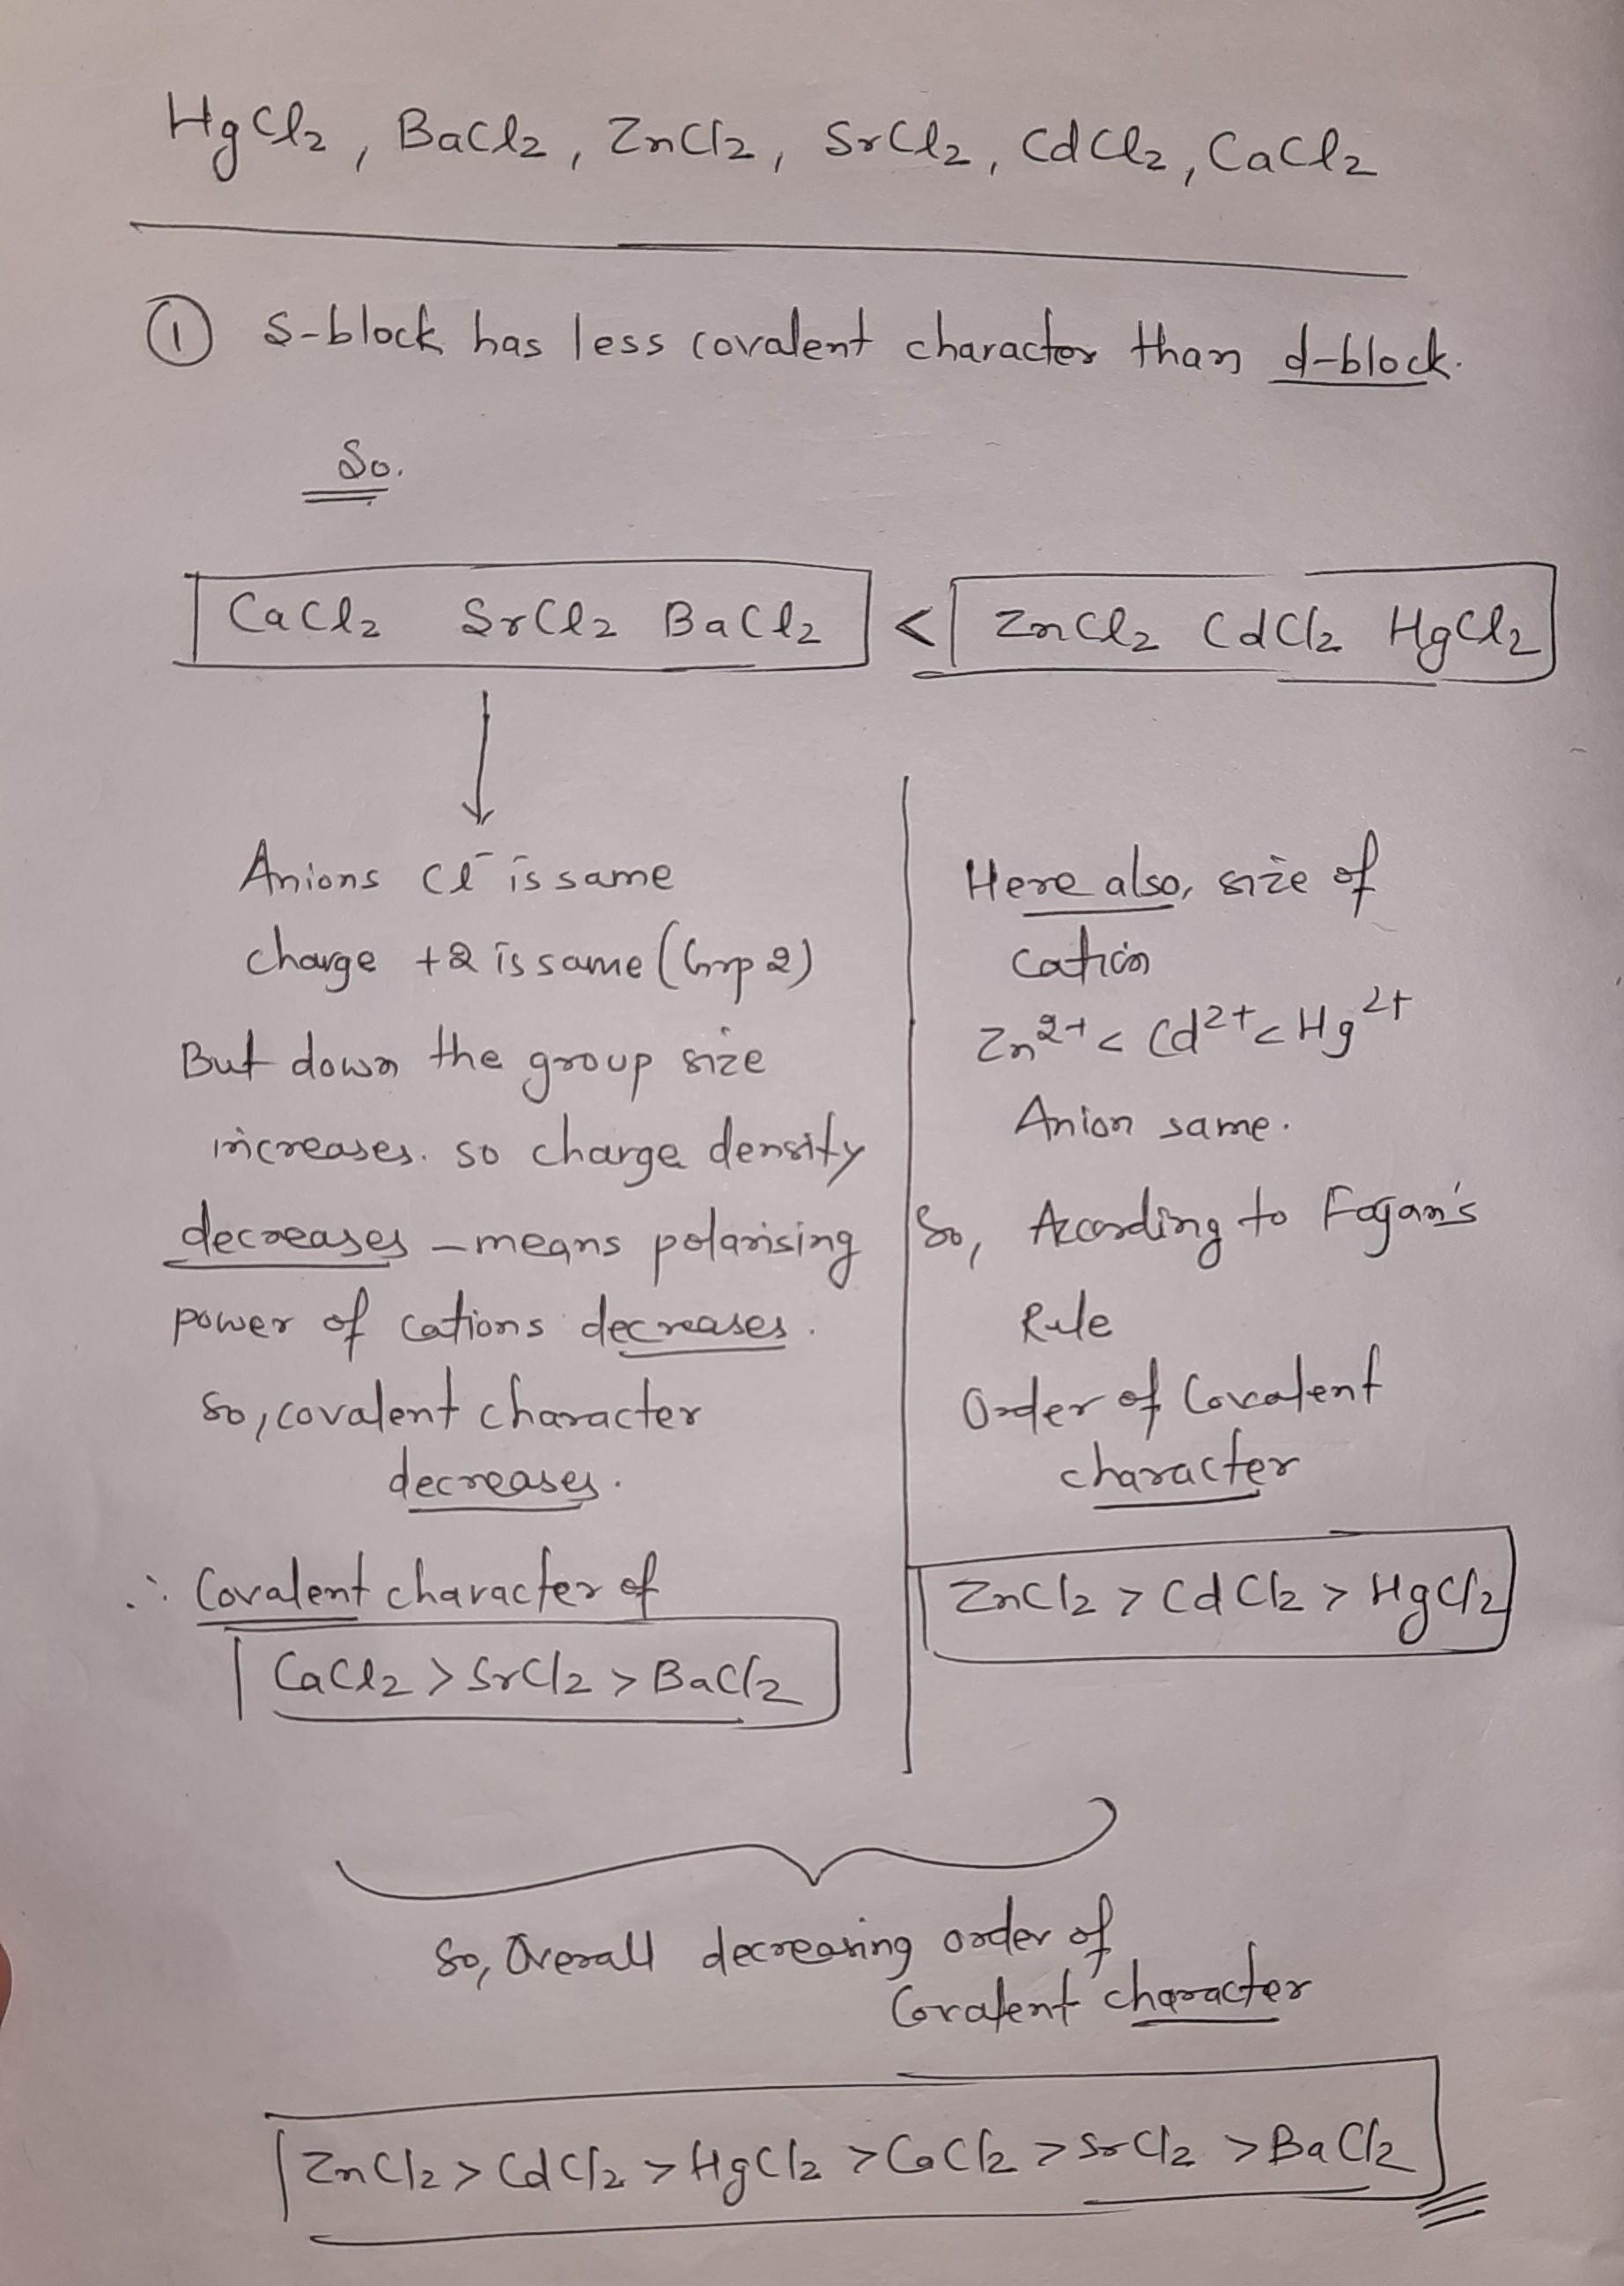 HgCl2, BaCl2, ZnCl2, SrCl2, CdCl2, CaCl2
① s-block has less covalent character than d-block.
So.
CaCl2 SrCl2 BaCl2 < ZnCl2 CdCl2 HgCl2
Anions Cl⁻ is same
charge +2 is same (Grp 2)
But down the group size
increases. so charge density
decreases – means polarising
power of cations decreases.
So, covalent character
decreases.
∴ Covalent character of
CaCl2 > SrCl2 > BaCl2
Here also, size of
cation
Zn²⁺ < Cd²⁺ < Hg²⁺
Anion same.
So, According to Fajan's
Rule
Order of Covalent
character
ZnCl2 > CdCl2 > HgCl2
So, Overall decreasing order of
Covalent character
ZnCl2 > CdCl2 > HgCl2 > CaCl2 > SrCl2 > BaCl2